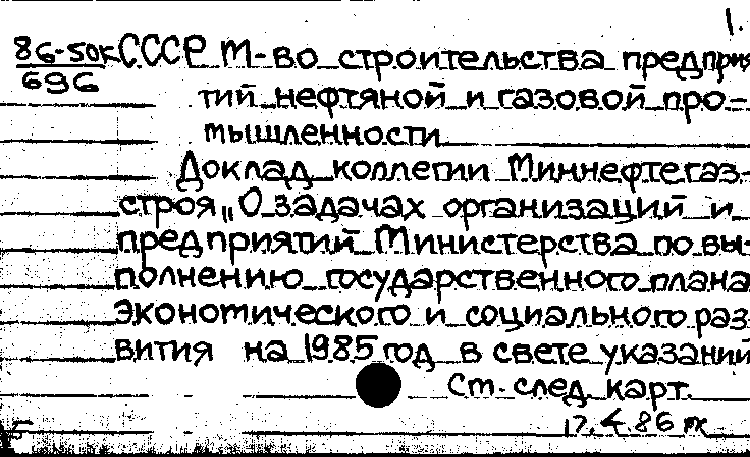 1.
86-50к СССР М-во строительства предприя
696
тий нефтяной и газовой про-
мышленности
Доклад коллегии Миннефтегаз-
строя „О задачах организаций и
предприятий Министерства по вы-
полнению государственного плана
экономического и социального раз-
вития на 1985 год в свете указаний
См. след. карт.
17.4.86